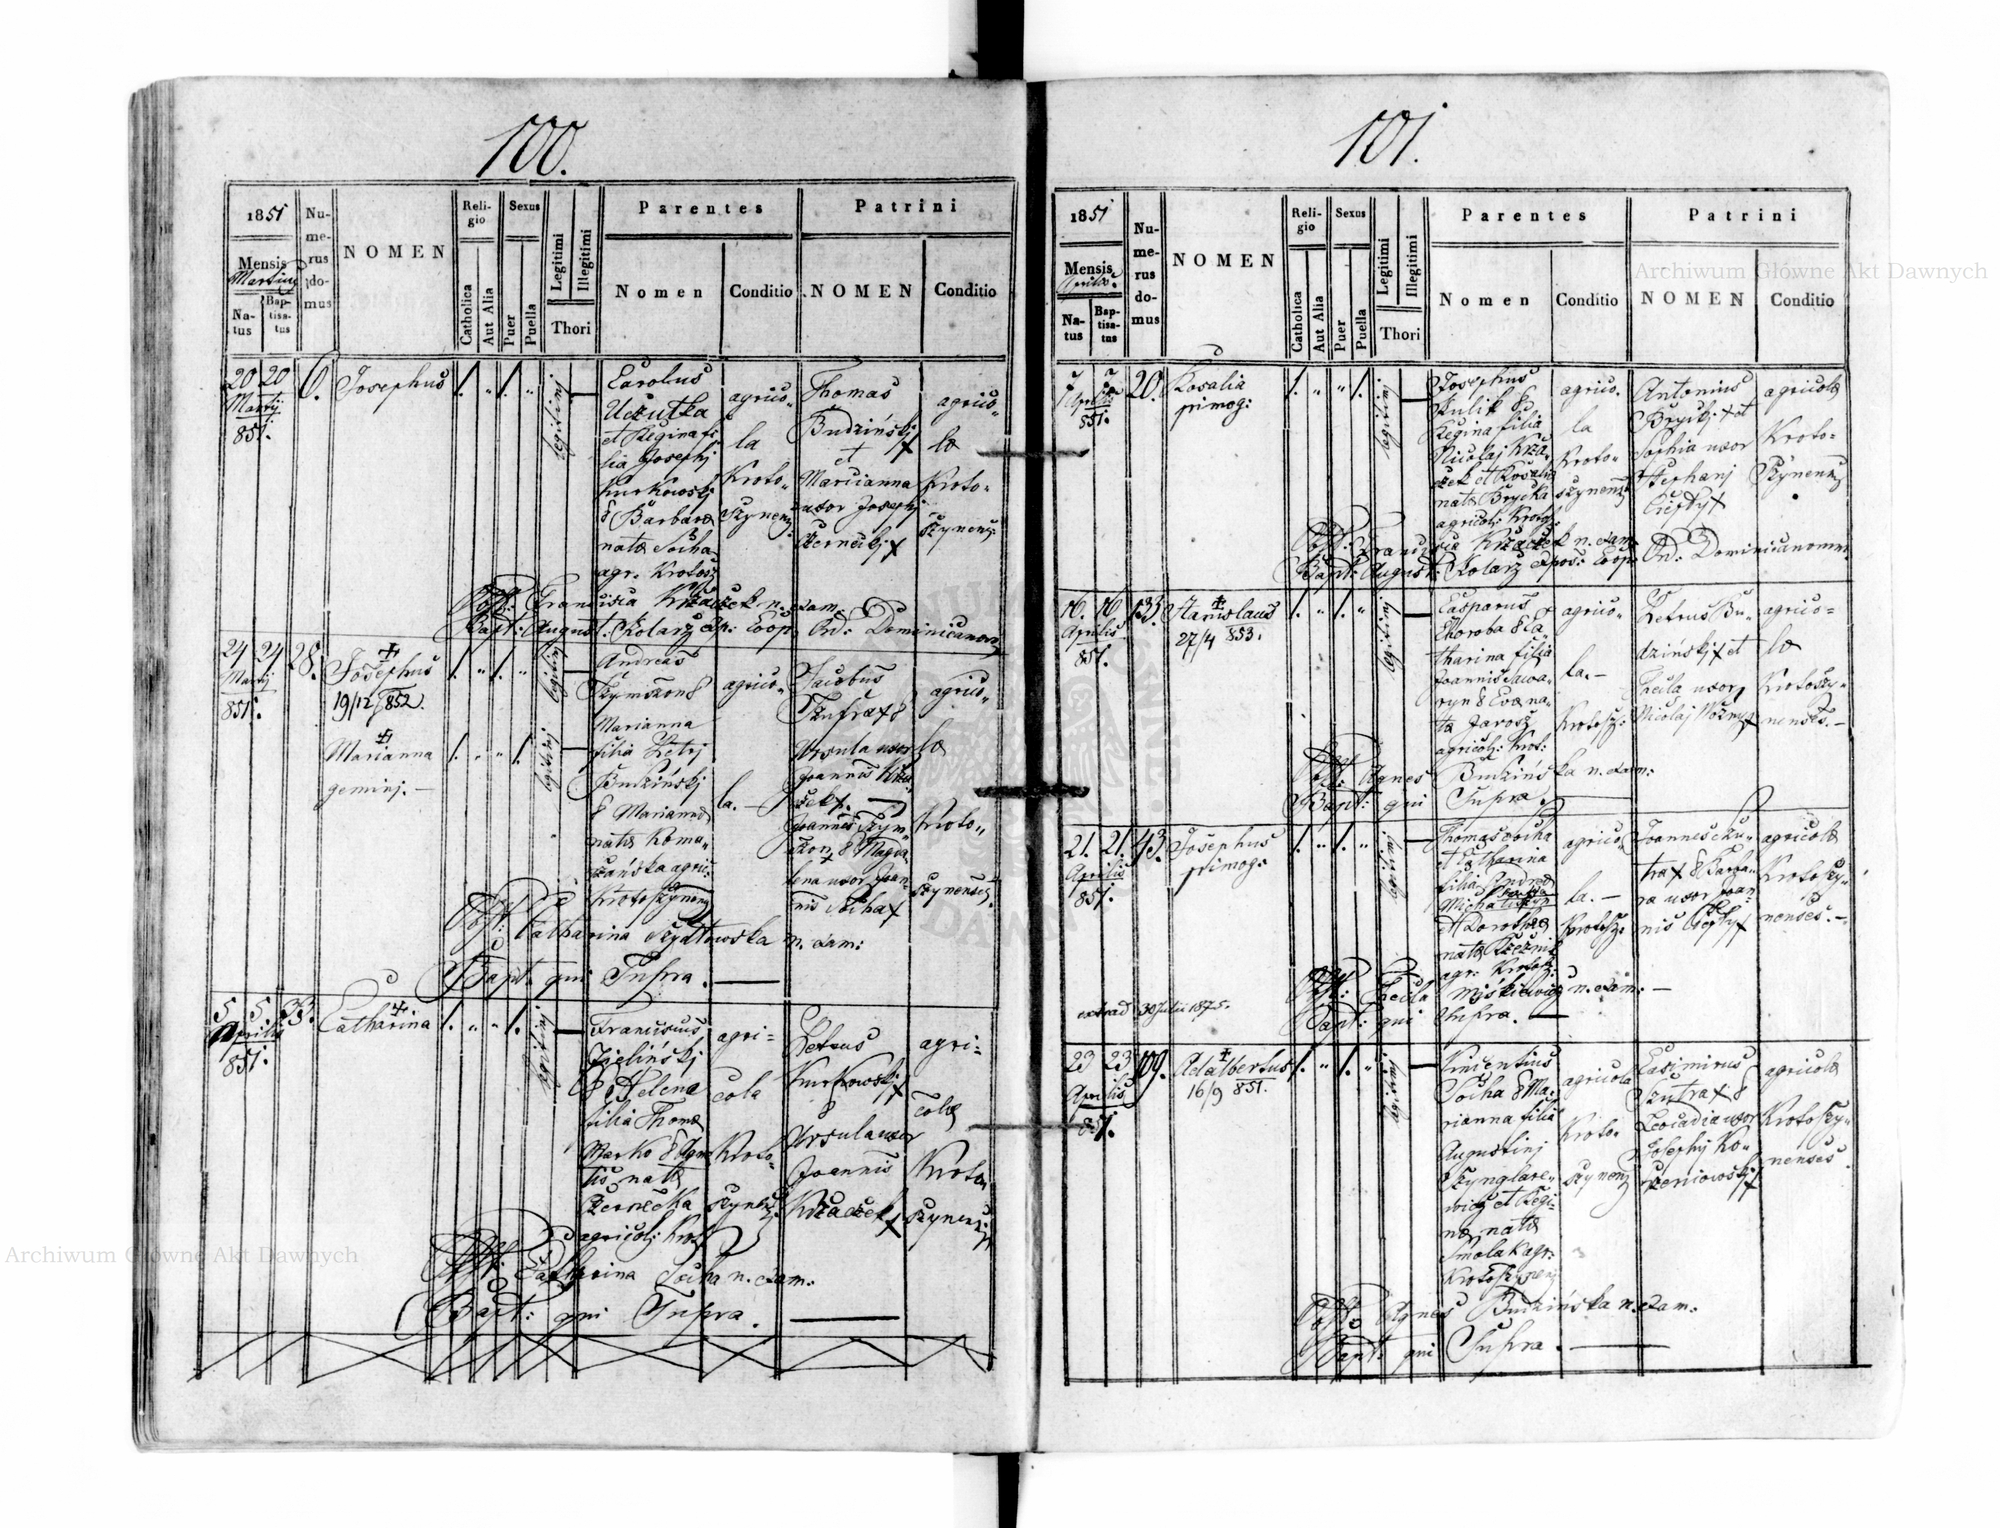 100.
1851
Mensis
Martius
Na-
tus
Bap-
tisa-
tus
Nu-
me-
rus
do-
mus
NOMEN
Reli-
gio
Catholica
Aut Alia
Sexus
Puer
Puella
Legitimi
Illegitimi
Thori
Parentes
Nomen
Conditio
Patrini
NOMEN
Conditio
20 20
Martij
851.
6.
Josephus
legitimi
Carolus
et Regina fi-
lia Josephj
Kurkowskj
& Barbara
nata Socha
agr. Krotosz
agrico-
la
Kroto-
szynens:
Thomas
Budzińskj
et
Marianna
uxor Josephj
agrico-
læ
Kroto-
szynens:
Obst: Francisca Krzaczek n. exam.
Bapt: August: Kolarz Exp: Coop. Ord: Dominicanorum
24 24
Martij
851.
28.
Josephus
19/12 852.
Marianna
geminj. —
legitimj
legitimj
Andreas
Szymszon &
Marianna
filia Petrj
Budzińskj
& Marianna
nata Roma-
agric:
Krotoszynens
agrico-
la. —
Jacobus
Szufra &
Ursula uxor
Joannis Krza-
czek
Joannes Szym-
szon & Magda-
lena uxor Joan-
nis Socha
agrico-
læ
Kroto-
szynenses
Obst: Catharina Szydłowska n. exam:
Bapt. qui Supra.
5 5
Aprilis
851.
33.
Catharina
legitimj
Franciscus
Zielińskj
& Helena
filia Thomæ
Marko & Agne-
tis nata
Czernecka
agricol: Krot
agri-
cola
Kroto-
szynens:
Petrus
Kurkowskj
&
Ursula uxor
Joannis
Krzaczek
agri-
colæ
Kroto-
szynens:
Obst: Catharina Socha n. exam:
Bapt: qui Supra.
101.
1851
Mensis
Aprilis
Na-
tus
Bap-
tisa-
tus
Nu-
me-
rus
do-
mus
NOMEN
Reli-
gio
Catholica
Aut Alia
Sexus
Puer
Puella
Legitimi
Illegitimi
Thori
Parentes
Nomen
Conditio
Patrini
NOMEN
Conditio
7 7
Aprilis
851.
20.
Rosalia
primog:
legitimj
Josephus
Kulik &
Regina filia
Nicolaj Krza-
czek et Rosalia
nata Brycka
agricol: Krotosz
agrico-
la
Kroto-
szynens:
Antonius
Bryckj et
Sophia uxor
Stephanj
Ciepły
agricolæ
Kroto-
szynens
Obst: Francisca Krzaczek n. exam:
Bapt: August: Kolarz Expos: Coop: Ord: Dominicanorum
16. 16
Aprilis
851.
135.
Stanislaus
27/4 853.
legitimj
Casparus
Choroba & Ca-
tharina filia
Joannis Sawa-
ryn & Eva na-
ta Jarosz
agricol: Krot:
agrico-
la. —
Krotosz:
Petrus Bu-
dzińskj et
Thecla uxor
Nicolaj Woźny
agrico-
læ
Krotoszy-
nenses. —
Obst: Agnes Budzińska n. exam:
Bapt: qui Supra.
21. 21.
Aprilis
851.
43.
Josephus
primog:
legitimj
Thomas Socha
et Catharina
filia Andreæ
et Dorothea
nata Rzeźnik
agr: Krotosz
agrico-
la. —
Krotosz:
Joannes Szu-
fra & Barba-
ra uxor Joan-
nis Ciepły
agricolæ
Krotoszy-
nenses. —
Obst: Thecla Miśkiewicz n. exam: —
Bapt: qui Supra. —
extrad 30 Julii 1875.
23 23
Aprilis
851.
109.
Adalbertus
16/9 851.
legitimj
Vincentius
Socha & Ma-
rianna filia
Augustinj
Szynglare-
wicz et Regi-
næ nata
Smolak agr:
Krotoszynens
agricola
Kroto-
szynens
Casimirus
Szufra &
Leocadia uxor
Josephj Ko-
rzeniowskj
agricolæ
Krotoszy-
nenses
Obst: Agnes Budzińska n. exam:
Bapt: qui Supra.
Archiwum Główne Akt Dawnych
Archiwum Główne Akt Dawnych